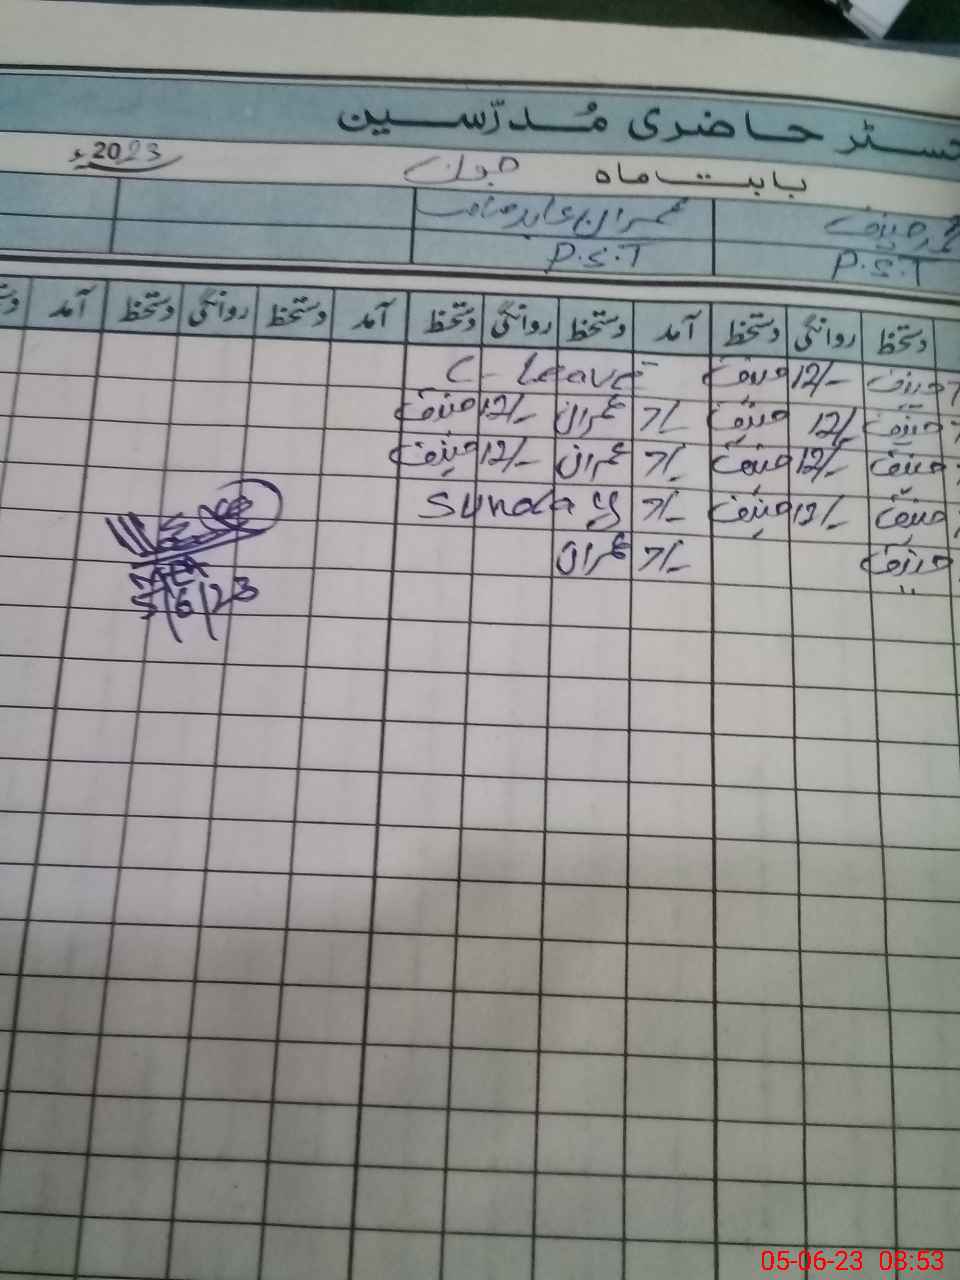 رجسٹر حاضری مُدرّسین
بابت ماہ جون 2023ء
حنیف عمران عابد صاحب
P.S.T P.S.T
دستخط روانگی دستخط آمد دستخط روانگی دستخط آمد دستخط روانگی دستخط آمد
حنیف 12/- حنیف C-Leave
حنیف 12/- حنیف 7/- عمران 12/- حنیف
حنیف 12/- حنیف 7/- عمران 12/- حنیف
حنیف 12/- حنیف 7/- Sunday
حنیف 7/- عمران
5/6/23
05-06-23 08:53